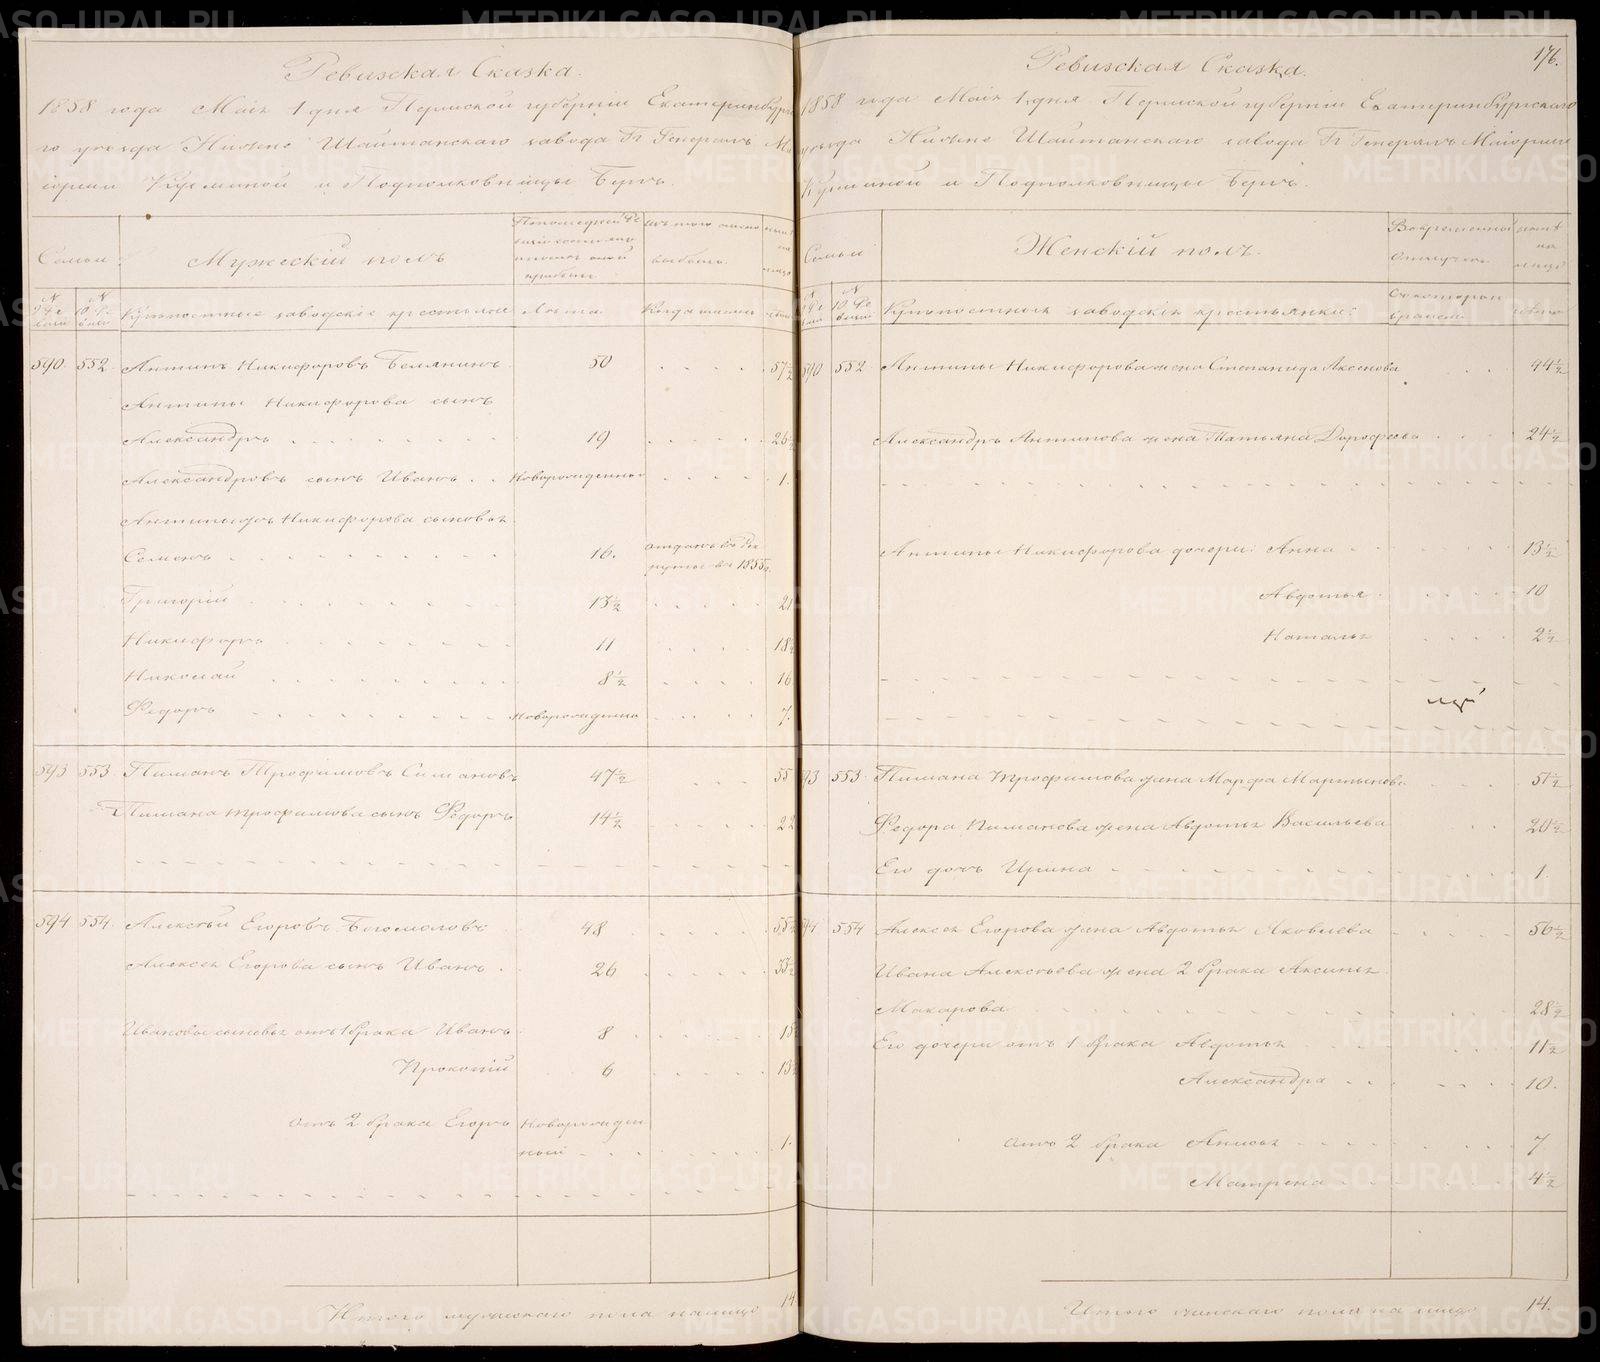 Ревизская Сказка.
1858 года Маія 1 дня Пермской губерніи Екатеринбургска
го уезда Нижне Шайтанскаго завода Гг Генералъ Ма
іорши Кузминой и Подполковницы Бергъ.
Семьи
Мужескій полъ
выбыло.
Крѣпостные заводскіе крестьяне
Лѣта.
Когда именно
590 552 Антипъ Никифоровъ Белянинъ 50 57½
Антипы Никифорова сынъ
Александръ 19 26½
Александровъ сынъ Иванъ Новорожденный 1.
Антиповы Никифорова сыновья
Семенъ 16. отданъ въ Рек
руты въ 1855 г.
Григорій 13½ 21
Никифоръ 11 18½
Николай 8½ 16
Федоръ Новорожденно 7.
593 553 Пиманъ Трофимовъ Симановъ 47½ 55
Пимана Трофимова сынъ Федоръ 14½ 22
594 554 Алексѣй Егоровъ Богомоловъ 48 55½
Алексея Егорова сынъ Иванъ 26 33½
Ивановы сыновья отъ 1 брака Иванъ 8
Прокопій 6 13½
отъ 2 брака Егоръ Новорожден
ный 1.
Итого мужескаго пола налицо 14
176.
Ревизская Сказка.
1858 года Маія 1 дня Пермской губерніи Екатеринбургскаго
уезда Нижне Шайтанскаго завода Гг Генералъ Маіорши
Кузминой и Подполковницы Бергъ.
Семьи
Женскій полъ.
Во временной
отлучкѣ
Крѣпостныя заводскія крестьянки:
Съ котораго
времени
590 552 Антипы Никифорова жена Степанида Аксенова 44½
Александръ Антипова жена Татьяна Дорофеева 24½
Антипы Никифорова дочери: Анна 13½
Авдотья 10
Наталья 2½
93 553 Пимана Трофимова жена Марфа Мартынова 51½
Федора Пиманова жена Авдотья Васильева 20½
Его дочь Ирина 1.
94 554 Алексея Егорова жена Авдотья Яковлева 56½
Ивана Алексѣева жена 2 брака Аксинья
Макарова 28½
Его дочери отъ 1 брака Авдотья 11½
Александра 10.
отъ 2 брака Анисья 7
Матрена 4½
Итого женскаго пола на лицо 14.
METRIKI.GASO-URAL.RU